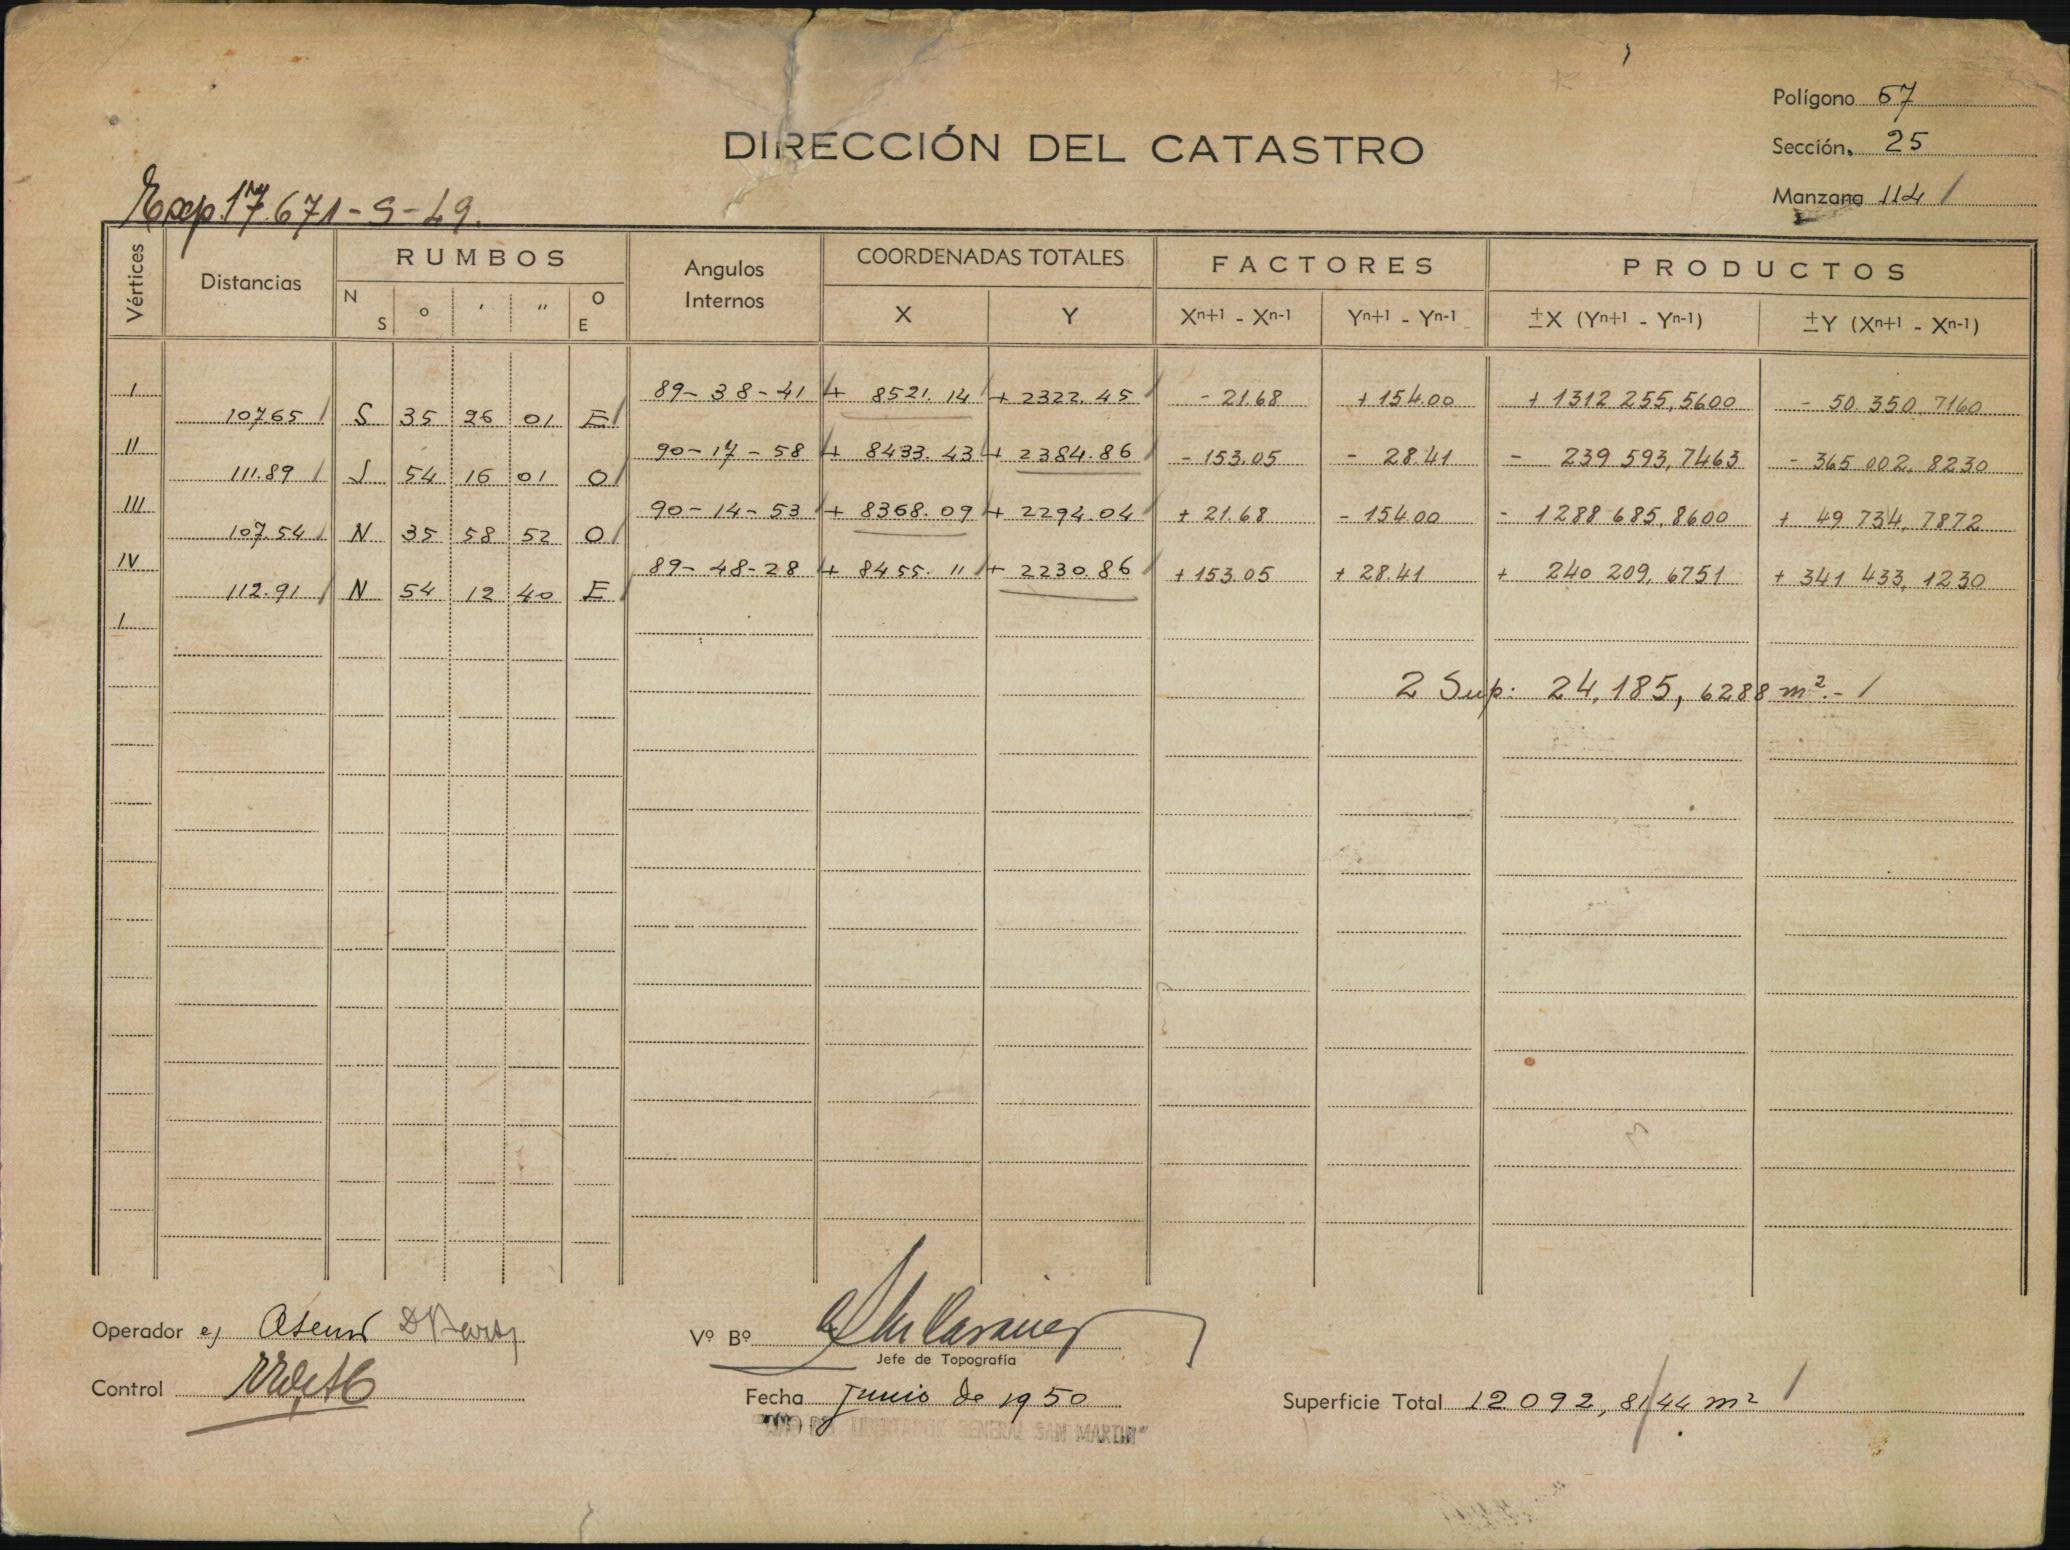 Polígono 67
DIRECCIÓN DEL CATASTRO
Sección, 25
Manzana 114 /
Exp. 17.671-S-49.
Vértices Distancias RUMBOS Angulos Internos COORDENADAS TOTALES FACTORES PRODUCTOS
N S o ′ ″ O E X Y Xⁿ⁺¹ - Xⁿ⁻¹ Yⁿ⁺¹ - Yⁿ⁻¹ ±X (Yⁿ⁺¹ - Yⁿ⁻¹) ±Y (Xⁿ⁺¹ - Xⁿ⁻¹)
I 89-38-41 + 8521.14 + 2322.45 - 21.68 + 154.00 + 1312 255,5600 - 50.350,7160
107.65 S 35 26 01 E
II 90-17-58 + 8433.43 + 2384.86 - 153.05 - 28.41 - 239 593,7463 - 365 002,8230
111.89 S 54 16 01 O
III 90-14-53 + 8368.09 + 2294.04 + 21.68 - 154.00 - 1288 685,8600 + 49 734,7872
107.54 N 35 58 52 O
IV 89-48-28 + 8455.11 + 2230.86 + 153.05 + 28.41 + 240 209,6751 + 341 433,1230
112.91 N 54 12 40 E
I
2 Sup: 24.185,6288 m².- /
Operador
Vº Bº
Jefe de Topografía
Control
Fecha Junio de 1950
Superficie Total 12092,8144 m² /
LIBERTADOR GENERAL SAN MARTIN"